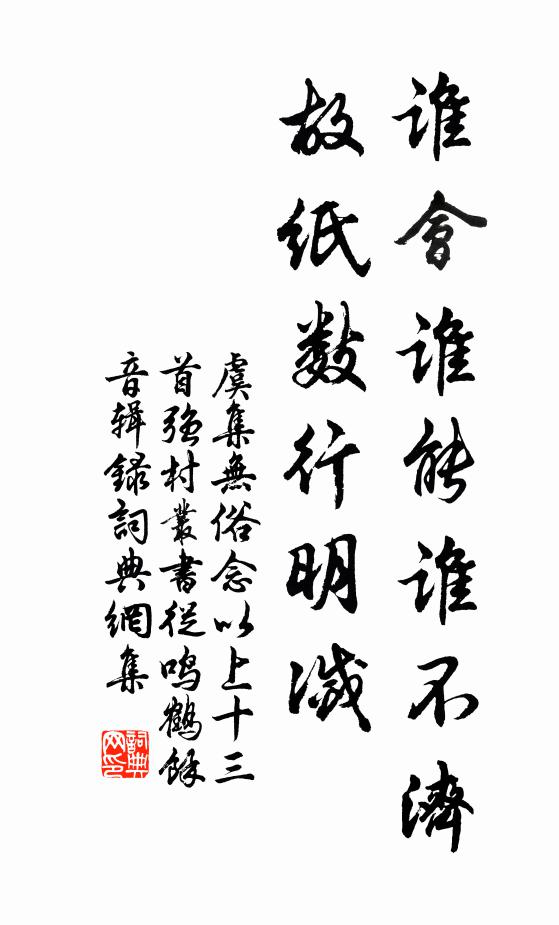 誰會誰能誰不濟
故紙數行明滅
虞集無俗念以上十三
首強村叢書從鳴鶴餘
音輯錄詞典網集
詞典網印